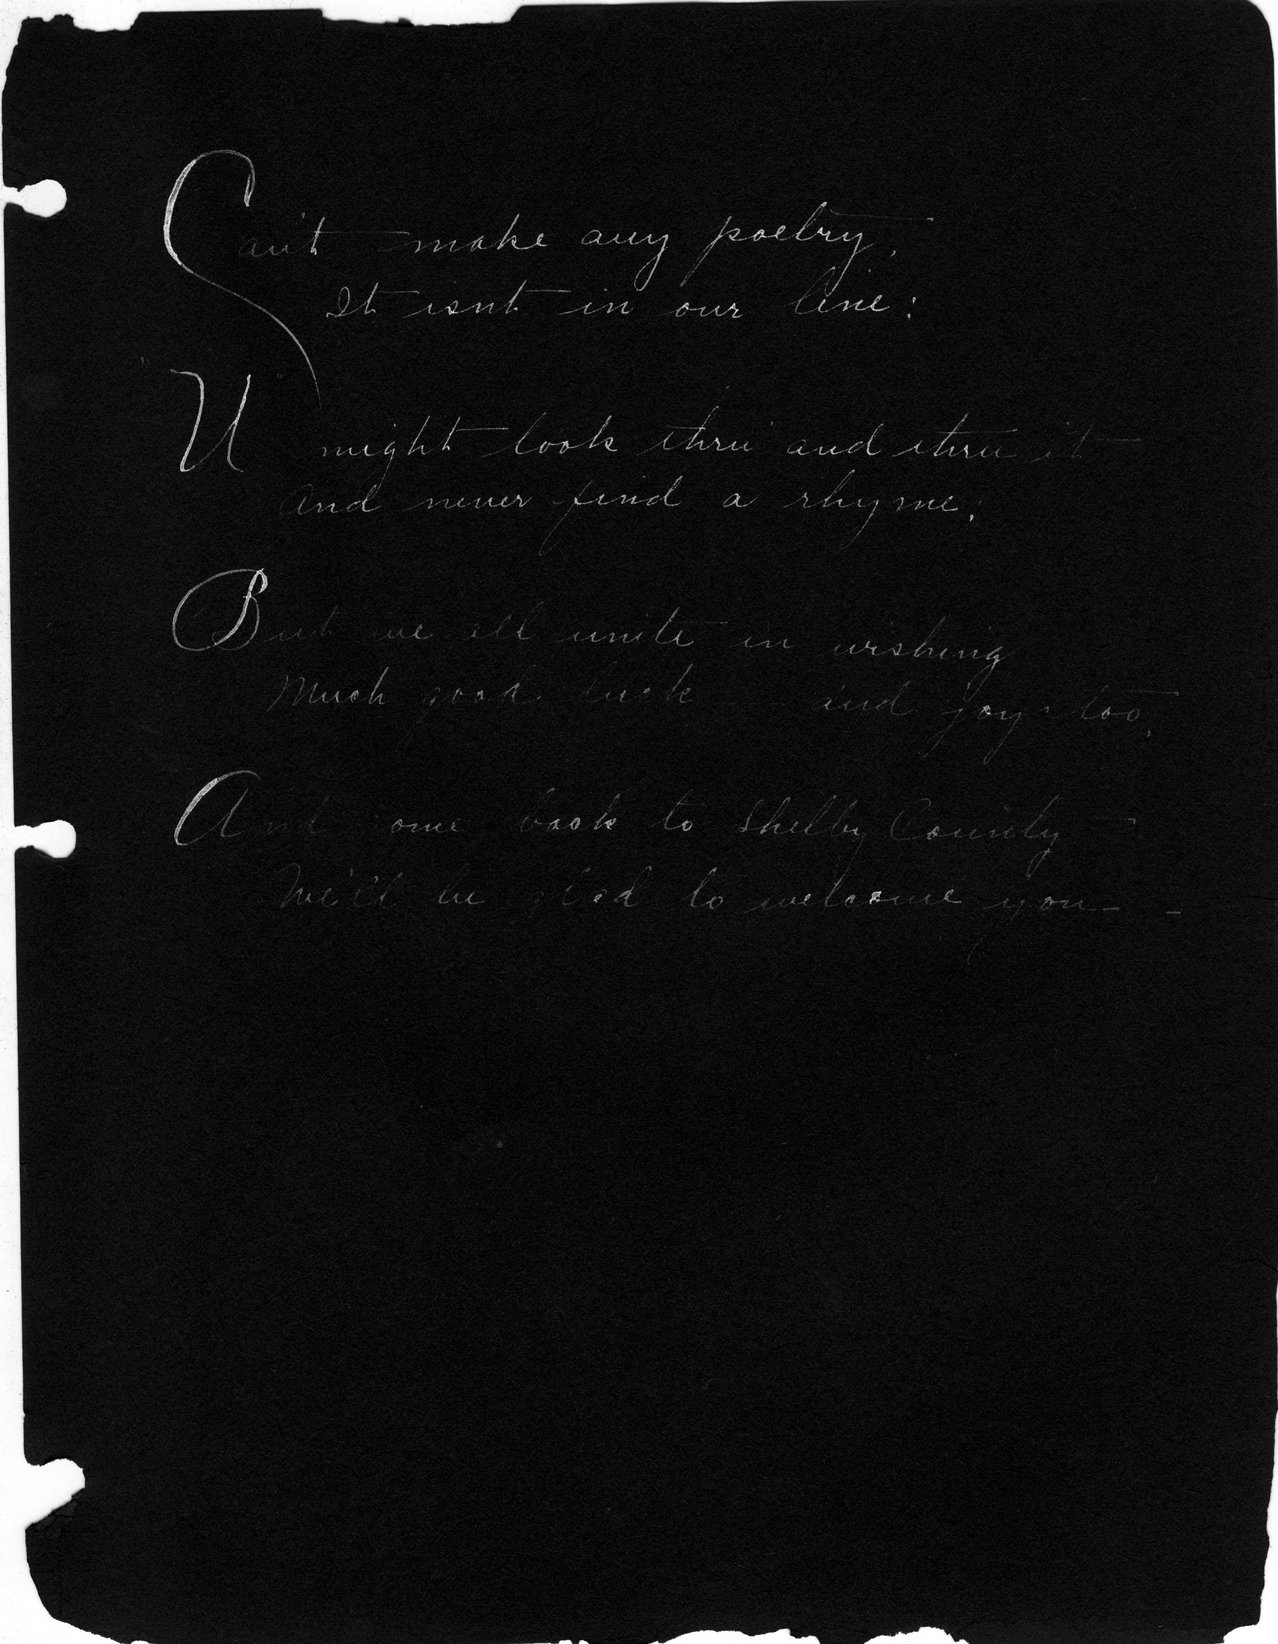 Can't make any poetry,
It isnt in our line:
U might look thru and thru it
And never find a rhyme.
But we all unite in wishing
Much good luck and joy too,
And come back to Shelby County
We'll be glad to welcome you